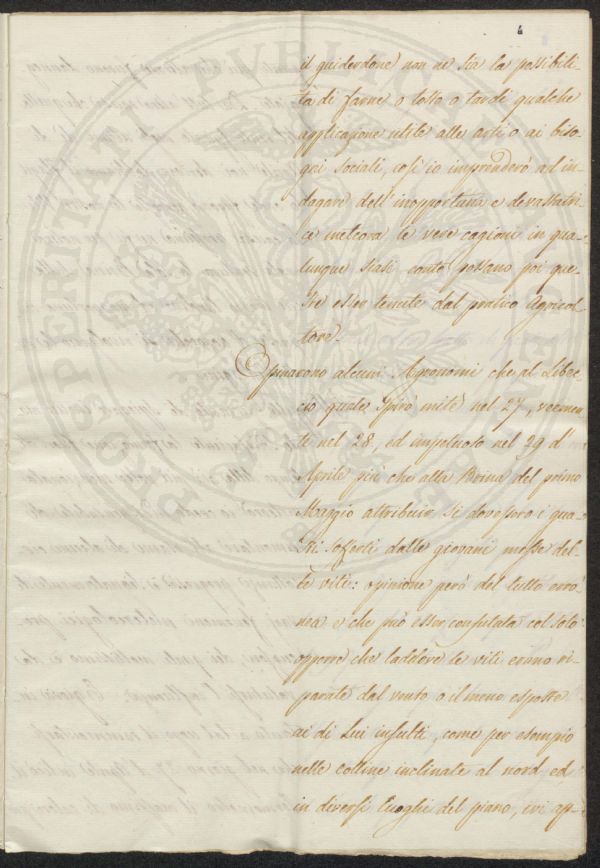 il guiderdone non ne sia la possibili-
tà di farne o tosto o tardi qualche
applicazione utile alle arti o ai biso-
gni sociali, così io imprenderò ad in-
dagare dell'inopportuna e devastatri-
ce meteora le vere cagioni in qua-
lunque siasi conto possano poi que-
ste esser tenute dal pratico Agricol-
tore.
Opinarono alcuni Agronomi che al Libec-
cio quale spirò mite nel 27, veemen-
te nel 28, ed impetuoso nel 29 d'
Aprile più che alla Brina del primo
Maggio attribuir si dovessero i gua-
sti sofferti dalle giovani messe del-
le viti: opinione però del tutto erro-
nea e che può esser confutata col solo
opporre che laddove le viti erano ri-
parate dal vento o il meno esposte
ai di Lui insulti, come per esempio
nelle colline inclinate al nord ed
in diversi luoghi del piano, ivi ap-
PROSPERITATI PVBLICAE